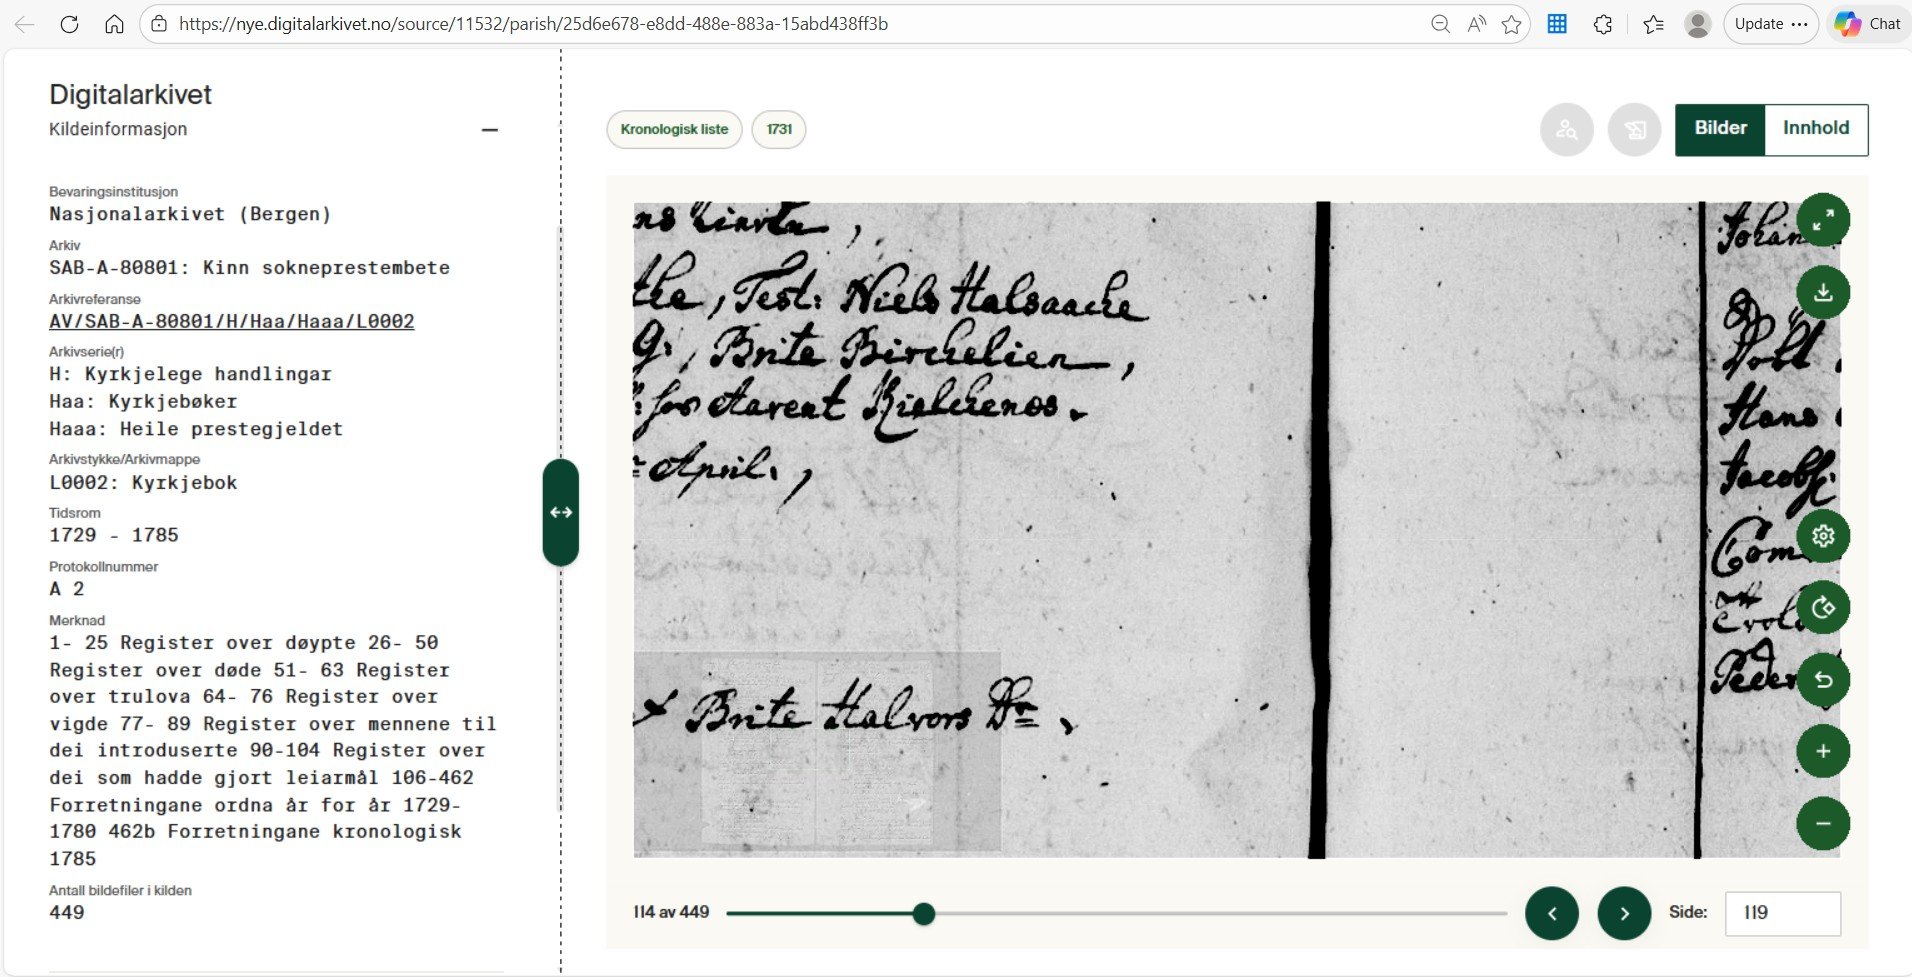 https://nye.digitalarkivet.no/source/11532/parish/25d6e678-e8dd-488e-883a-15abd438ff3b
Update
Chat
Digitalarkivet
Kildeinformasjon
Bevaringsinstitusjon
Nasjonalarkivet (Bergen)
Arkiv
SAB-A-80801: Kinn sokneprestembete
Arkivreferanse
AV/SAB-A-80801/H/Haa/Haaa/L0002
Arkivserie(r)
H: Kyrkjelege handlingar
Haa: Kyrkjebøker
Haaa: Heile prestegjeldet
Arkivstykke/Arkivmappe
L0002: Kyrkjebok
Tidsrom
1729 - 1785
Protokollnummer
A 2
Merknad
1- 25 Register over døypte 26- 50
Register over døde 51- 63 Register
over trulova 64- 76 Register over
vigde 77- 89 Register over mennene til
dei introduserte 90-104 Register over
dei som hadde gjort leiarmål 106-462
Forretningane ordna år for år 1729-
1780 462b Forretningane kronologisk
1785
Antall bildefiler i kilden
449
Kronologisk liste
1731
Bilder
Innhold
, Test: Niels Halsaacke
G:, Brite Birckelien,
for Aarent
April.,
Brite Halvors Dr,
Johan
Poll
Hans
Jacobs
Peder
114 av 449
Side:
119